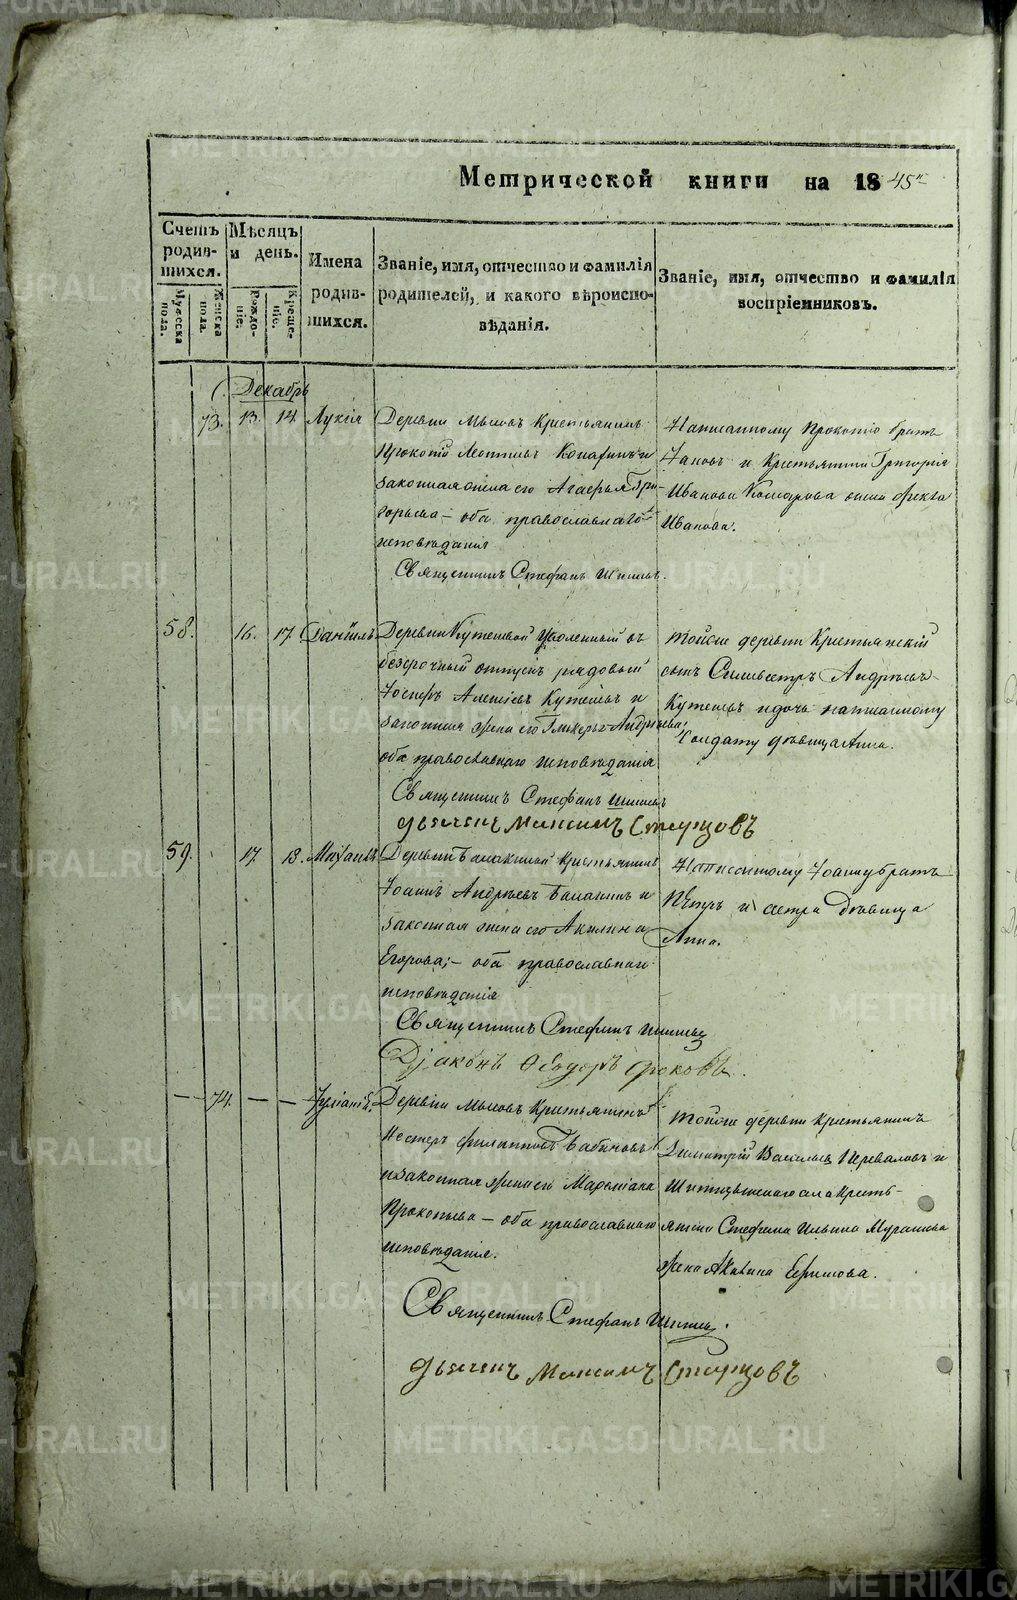 Метрической книги на 1845й
Счетъ родив-шихся.
Мужеска пола.
Женска пола.
Мѣсяцъ и день.
Рожде-нія.
Креще-нія.
Имена родив-шихся.
Званіе, имя, отчество и фамилія
родителей, и какого вѣроиспо-
вѣданія.
Званіе, имя, отчество и фамилія
воспріемниковъ.
Декабрь
73. 13. 14. Лукія
Деревни Мысовъ Крестьянинъ
Прокопій
законная жена его Агафья Гри-
горьева – оба православнаго
исповѣданія
Священникъ Стефанъ
Написанному Прокопію братъ
и Крестьянина Григорія
Иванова жена Фекла
Иванова.
58. 16. 17. Даніилъ
Деревни Кутеневой Уволенный въ
безсрочный отпускъ рядовый
Іосифъ Алексіевъ Кутеневъ и
законная жена его Гликерья Андреева,
оба православнаго исповѣданія
Священникъ Стефанъ
Дьячекъ Максимъ Старцовъ
Тойже деревни Крестьянскій
сынъ Сильвестръ Андреевъ
Кутеневъ и дочь написанному
Солдату дѣвица Анна.
59. 17. 18. Михаилъ
Деревни Балакиной Крестьянинъ
Іоаннъ Андреевъ Балакинъ и
законная жена его Акилина
Егорова; – оба православнаго
исповѣданія
Священникъ Стефанъ
Діаконъ Ѳеодоръ Фоковъ.
Написанному Іоанну братъ
Петръ и сестра Дѣвица
Анна.
– 74. – – Іуліанія.
Деревни Мысовъ Крестьянинъ
Нестеръ Филипповъ Бабиновъ
и законная жена его
Прокопьева – оба православнаго
исповѣданія.
Священникъ Стефанъ
Дьячекъ Максимъ Старцовъ
Тойже деревни крестьянинъ
Димитрій Васильевъ и
села Кресть-
янина Стефана Ильина Мурашева
жена Акилина Ефимова.
METRIKI.GASO-URAL.RU